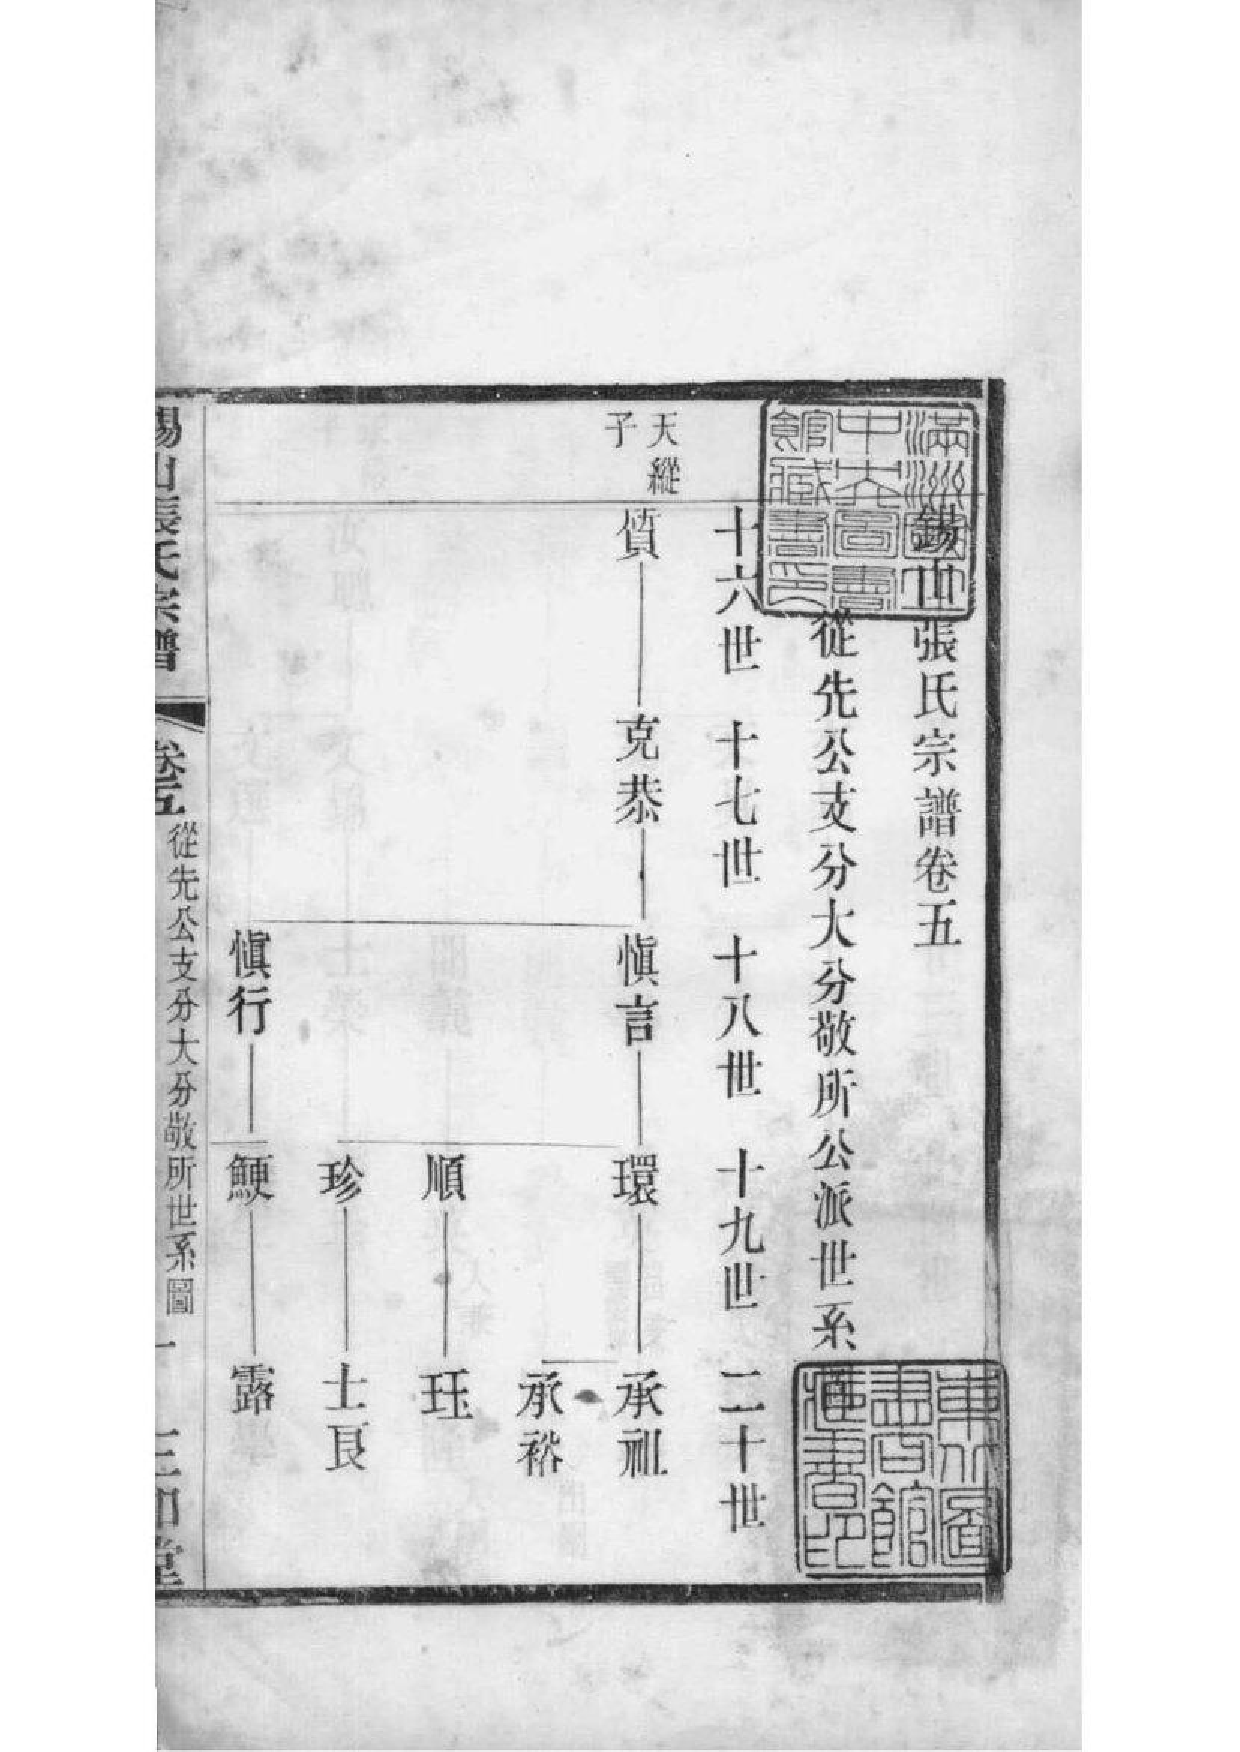 錫山張氏宗譜卷五
從先公支分大分敬所公派世系
十六世 十七世 十八世 十九世 二十世
天縱子
質 克恭 慎言 環 承祖
承裕
順 珏
珍 士良
慎行 鯁 露
錫山張氏宗譜 卷五 從先公支分大分敬所世系圖 一
滿洲國中央圖書館藏書印
東北圖書館藏書印